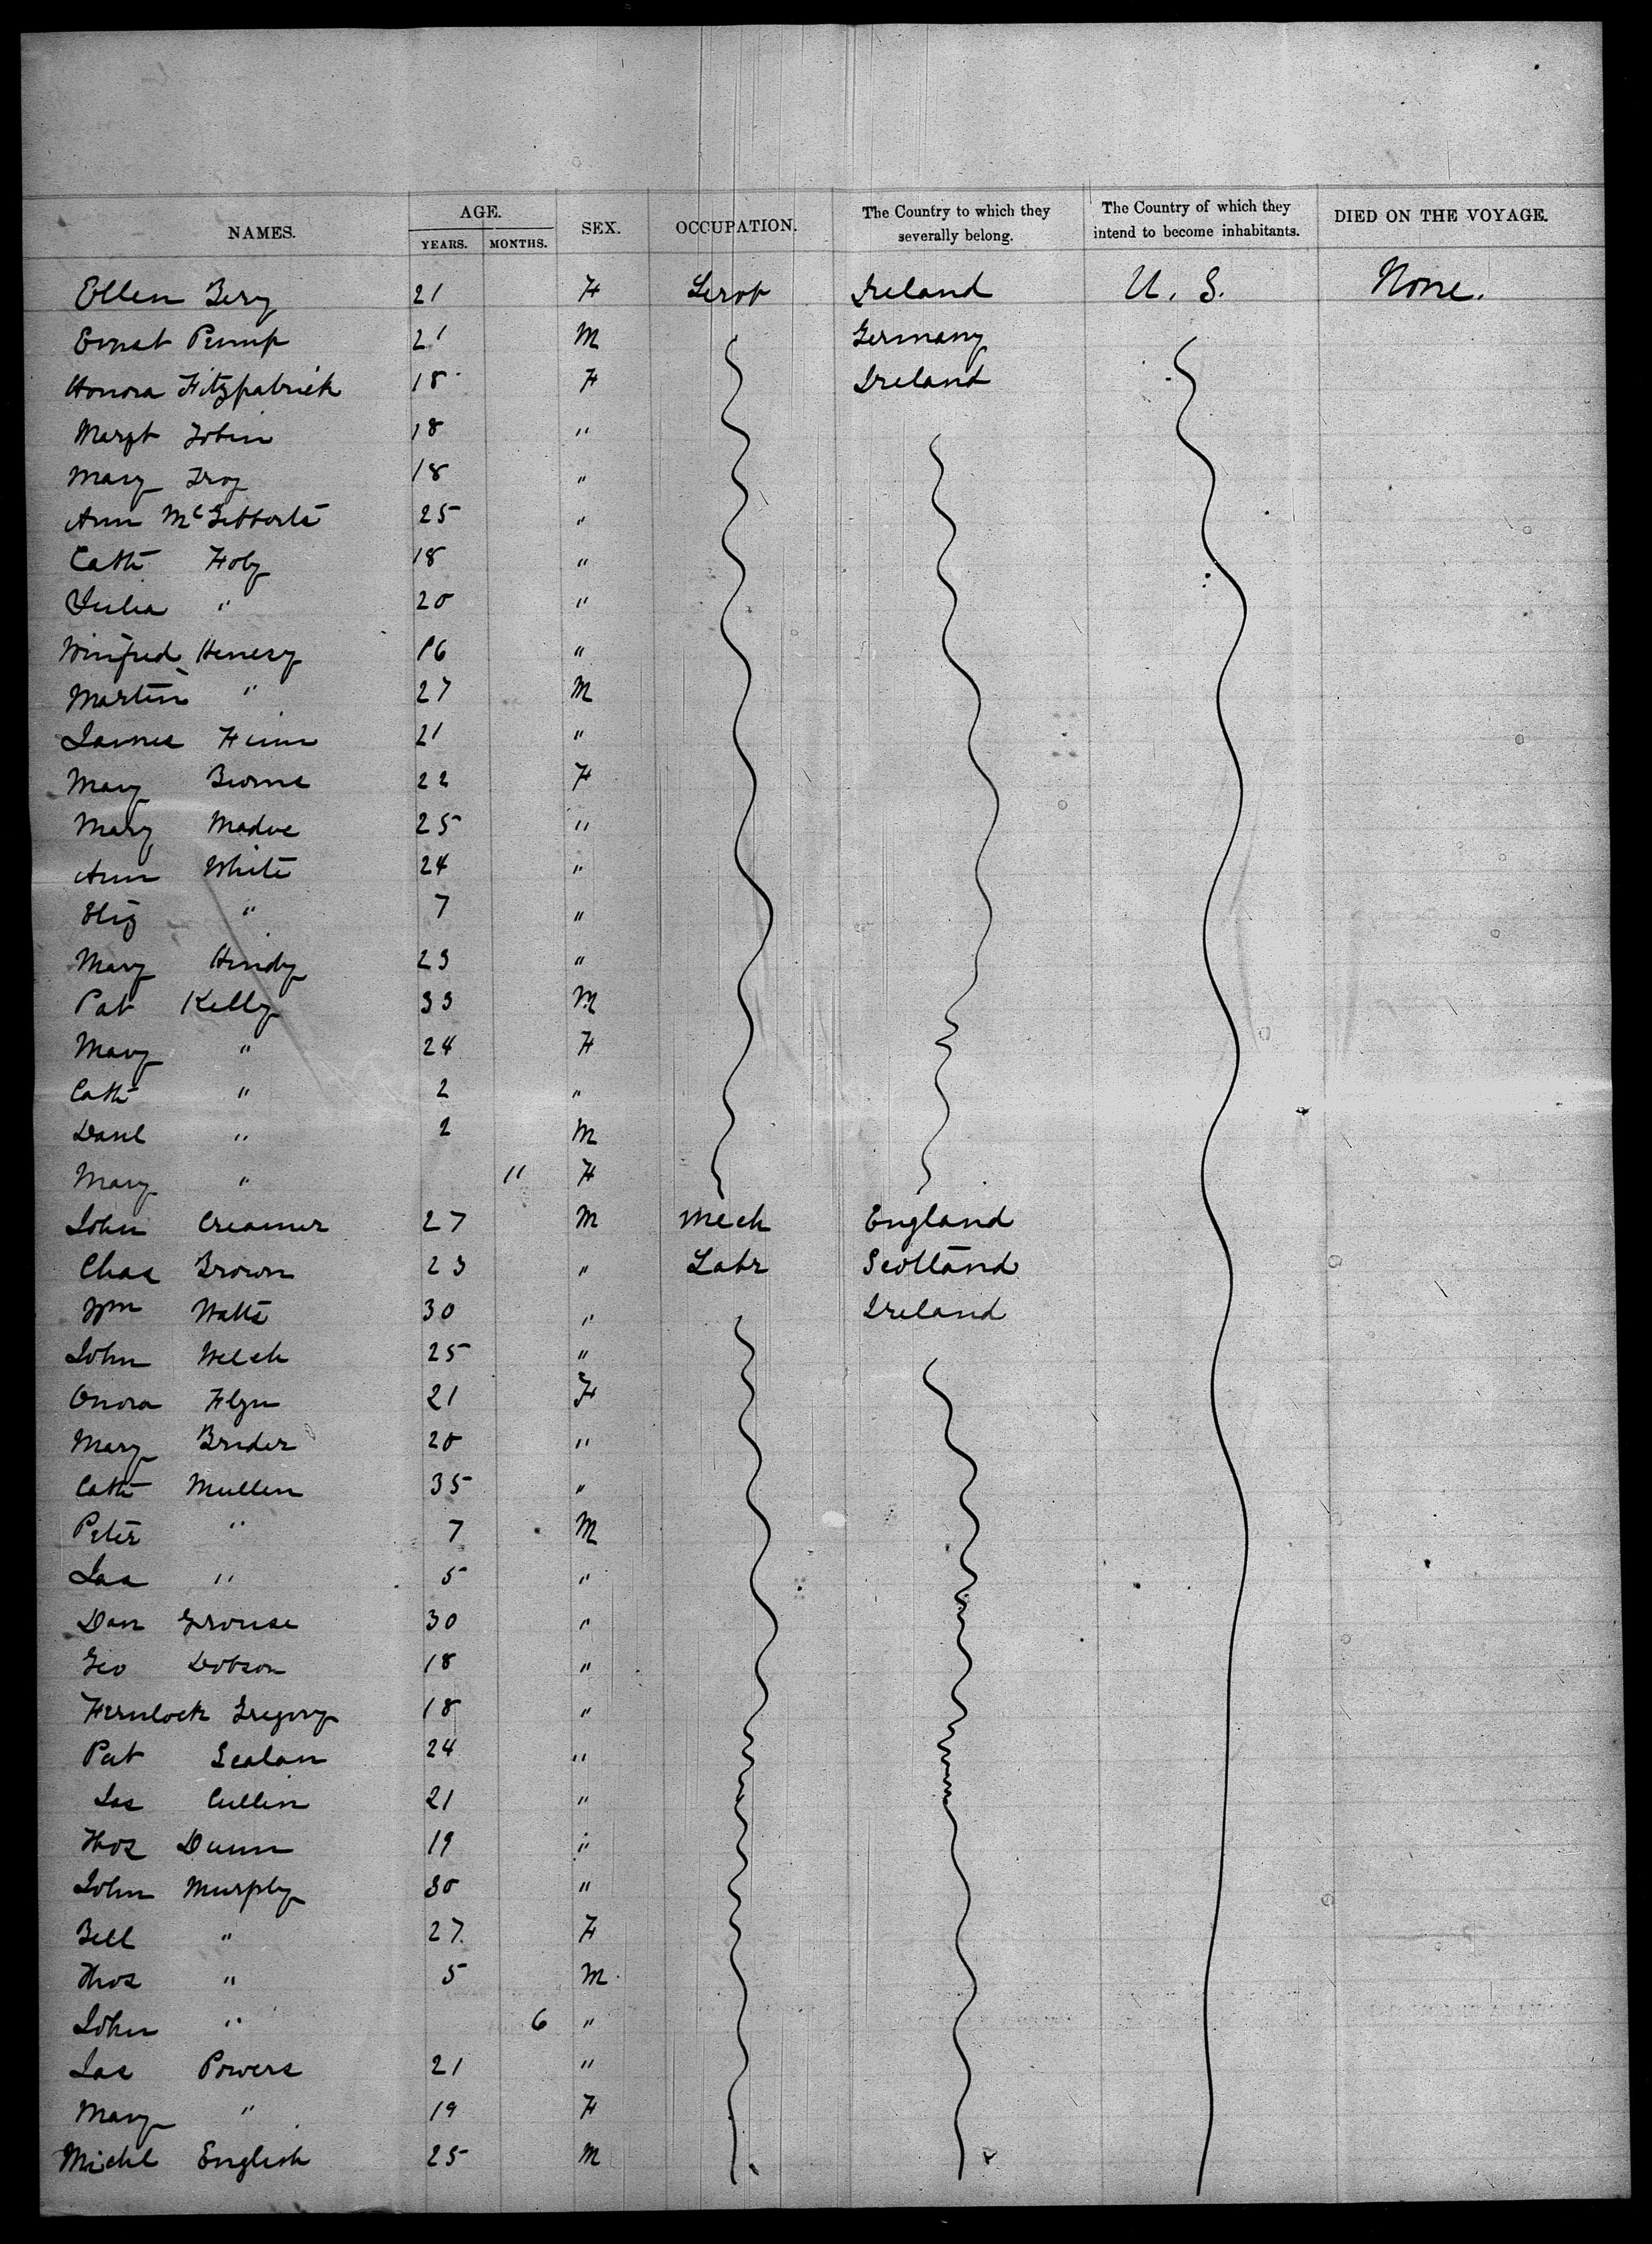 NAMES. AGE. SEX. OCCUPATION. The Country to which they severally belong. The Country of which they intend to become inhabitants. DIED ON THE VOYAGE.
YEARS. MONTHS.
Ellen Bery 21 F Servt Ireland U. S. None.
Ernst Pump 21 M Germany
Honora Fitzpatrick 18 F Ireland
Margt Tobin 18 "
Mary Troy 18 "
Ann 25 "
Cath Foby 18 "
Julia " 20 "
Winifred Henesy 16 "
Martin " 27 M
James Finn 21 "
Mary Beirne 22 F
Mary Madue 25 "
Ann White 24 "
Eliz " 7 "
Mary Hindy 23 "
Pat Kelly 33 M
Mary " 24 F
Cath " 2 "
Danl " 2 M
Mary " 11 F
John Creamer 27 M Mech England
Chas Brown 23 " Labr Scotland
Wm Watts 30 " Ireland
John Welsh 25 "
Onora Flyn 21 F
Mary Brider 20 "
Cath Mullen 35 "
Peter " 7 M
Jas " 5 "
Dan Grouse 30 "
Geo Dobson 18 "
Gregory 18 "
Pat Scalan 24 "
Jas Cullin 21 "
Thos Dunn 19 "
John Murphy 30 "
Bell " 27 F
Thos " 5 M
John " 6 "
Jas Powers 21 "
Mary " 19 F
Michl English 25 M